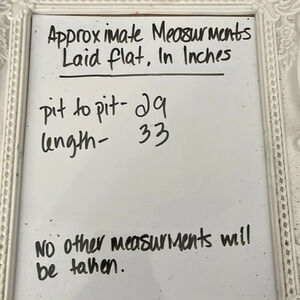 Approximate Measurments
Laid flat, In Inches
pit to pit- 29
length- 33
No other measurments will
be taken.